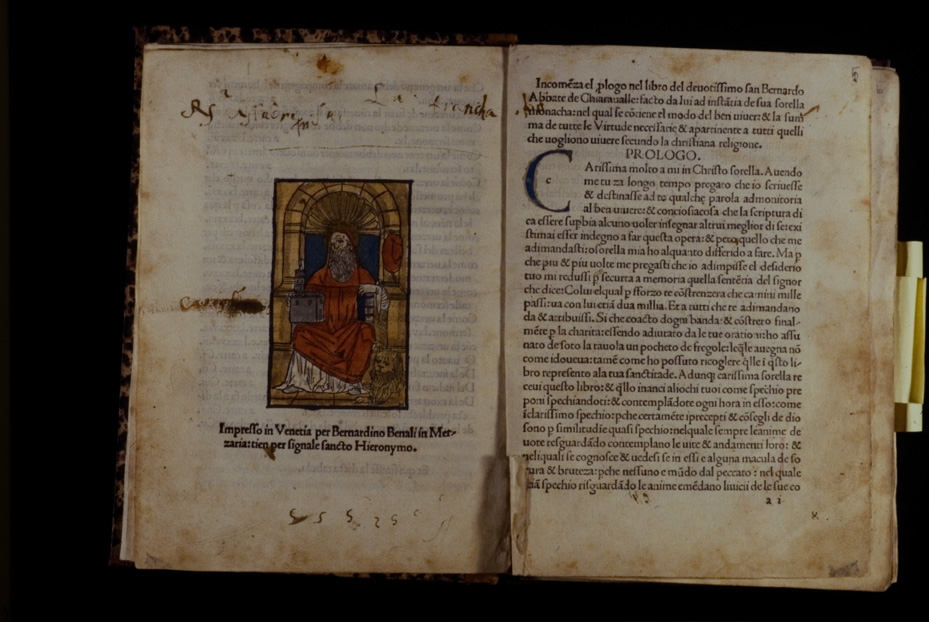 Impresso in Venetia per Bernardino Benali in Mer-
zaria: tien per signale sancto Hieronymo.
Incomēza el ꝓlogo nel libro del deuotissimo san Bernardo
Abbate de Chiaraualle: facto da lui ad instātia de sua sorella
monacha: nel qual se cōtiene el modo del ben uiuer: & la sum
ma de tutte le Virtude necessarie & apartinente a tutti quelli
che uogliono uiuere secundo la christiana religione.
PROLOGO.
CArissima molto a mi in Christo sorella. Auendo
me tu za longo tempo pregato che io scriuesse
& destinasse ad te qualche parola admonitoria
al ben uiuere: & conciosiacosa che la scriptura di
ca essere supbia alcuno uoler insegnar altrui meglior di se: exi
stimai esser indegno a far questa opera: & pero quello che me
adimandasti: o sorella mia ho alquāto differido a fare. Ma p
che piu & piu uolte me pregasti che io adimpisse el desiderio
tuo mi redussi p securta a memoria quella sentētia del signor
che dice: Colui elqual p sforzo te cōstrenzera che camini mille
passi: ua con lui etiā dua millia. Et a tutti che te adimandano
da & atribuissi. Si che coacto dogni banda: & cōstreto final-
mēte p la charita: essendo adiutato da le tue orationi: ho assu
nato de soto la tauola un pocheto de fregole: leq̄le auegna nō
come idoueua: tamē come ho possuto ricogliere q̄lle i q̄sto li-
bro represento ala tua sanctitade. Adunq; carissima sorella re
ceui questo libro: & q̄llo inanci aliochi tuoi come spechio pre
poni spechiandoti: & contemplādote ogni hora in esso: come
iclarissimo spechio: pche certamēte i precepti & cōsegli de dio
sono p similitudie quasi spechio: nelquale sempre leanime de
uote resguardādo contemplano le uite & andamenti loro: &
neliquali se cognosce & uedesi se in essi e alguna macula de so
zura & bruteza: pche nessuno e mūdo dal peccato: nel quale
etiā spechio risguardādo le anime emēdano liuicii de le sue co
a i